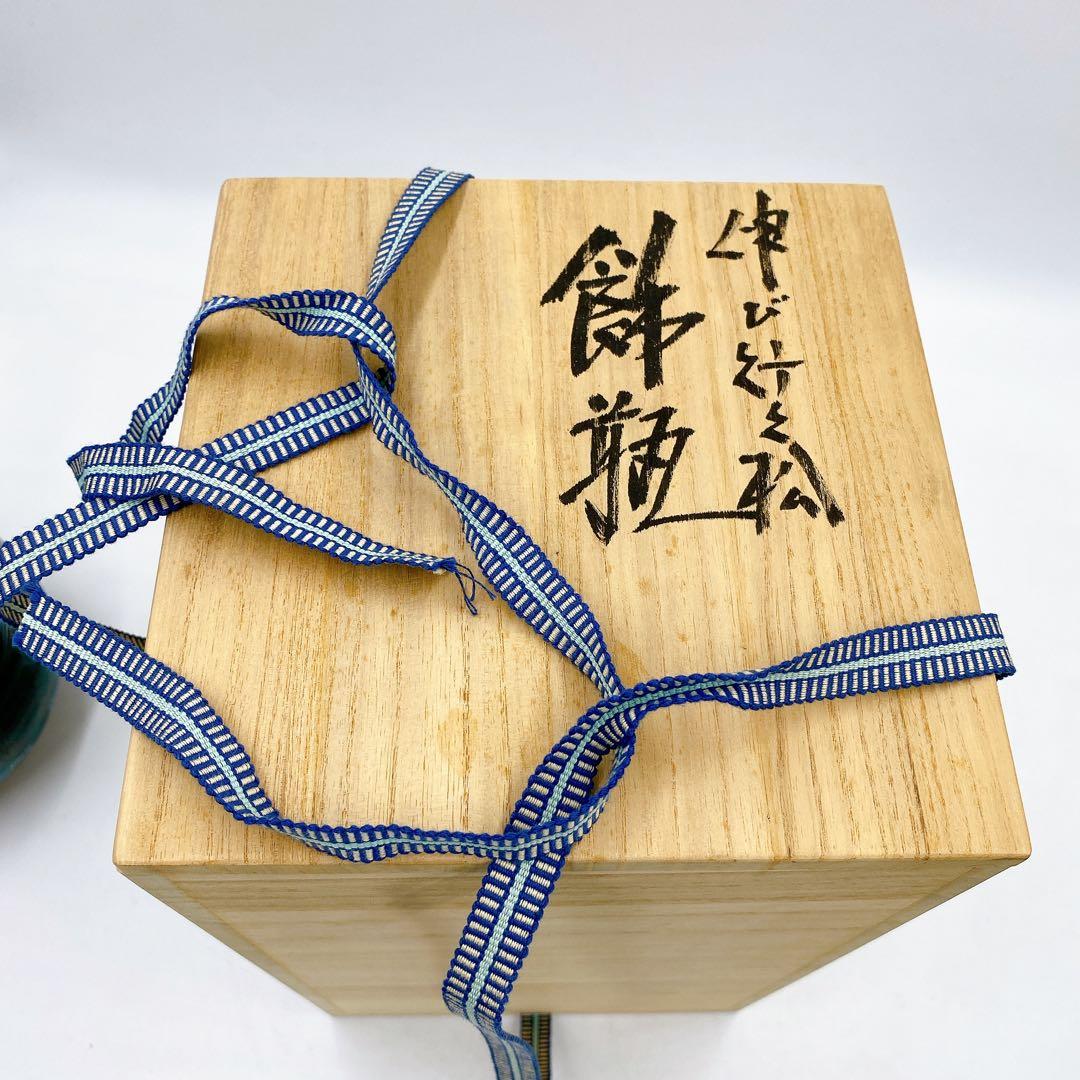 伸び行く松
飾瓶